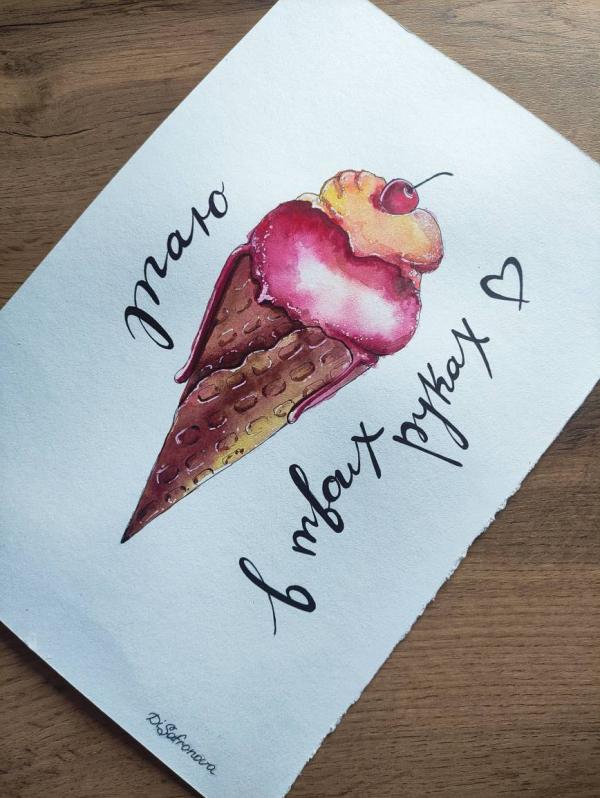 таю
в твоих руках ♡
DiSafronova